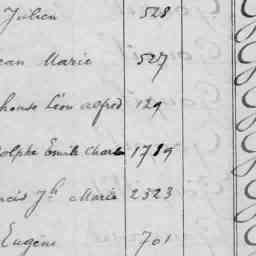 Julien 528
ean Marie 527
house Léon alfred 129
olphe Emile Charles 1719
ncis Jh Marie 2323
Eugène 701